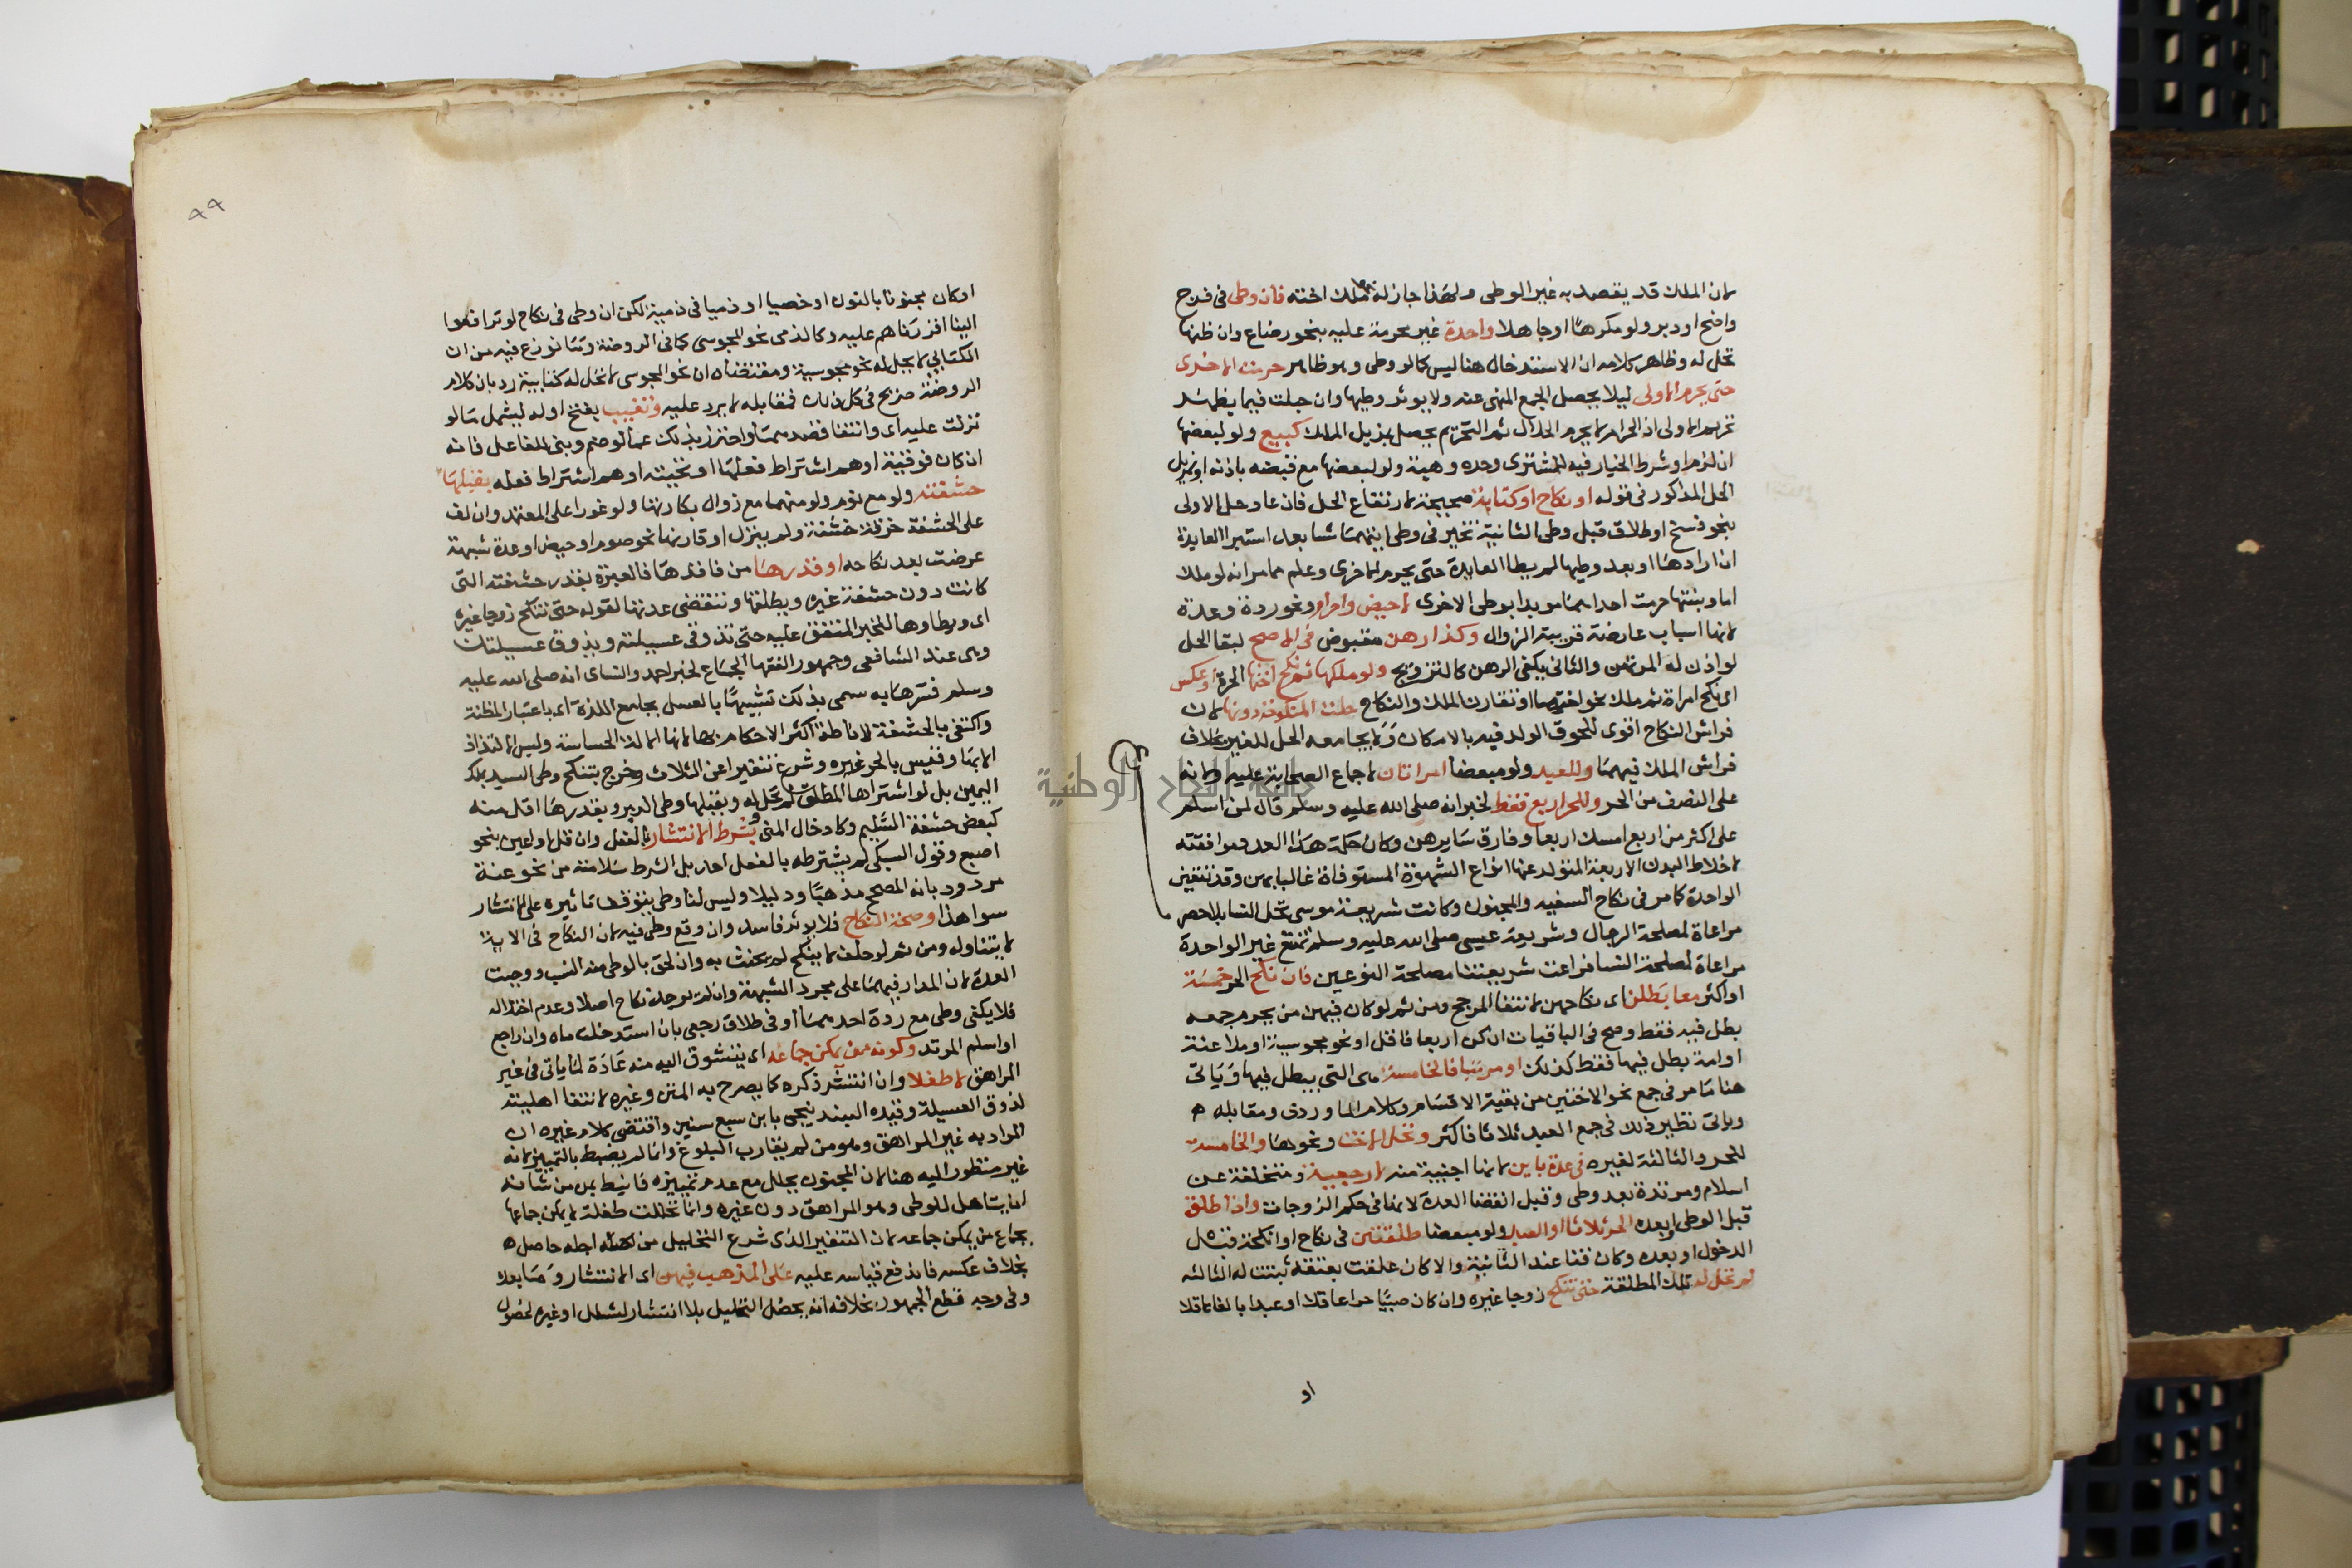 لان الملك قد يقصد به غير الوطى ولهذا جاز له ملك اخته فان وطى فى فرج
واضح او دبر ولو مكرها او جاهلا واحدة غير محرمة عليه بنحو رضاع وان ظنها
تحل له وظاهر كلامه ان الاستدخال هنا ليس كالوطى وهو ظاهر حرمت الاخرى
حتى يحرم الاولى ليلا يحصل الجمع المنهى عنه ولا يوثر وطيها وان حبلت فيما يظهر
تحريم الاولى اذ الحرام لا يحرم الحلال ثم التحريم يحصل بمزيل الملك كبيع ولو لبعضها
ان لزم او شرط الخيار فيه للمشترى وحده وهبة ولو لبعضها مع قبضه باذنه او بمزيل
الحل المذكور فى قوله او نكاح او كتابة صحيحة لارتفاع الحل فان عاد حل الاولى
بنحو فسخ او طلاق قبل وطى الثانية تخير فى وطى ايتهما شا بعد استبرا العايدة
ان ارادها او بعد وطيها لم يطا العايدة حتى يحرم الاخرى وعلم مما مر انه لو ملك
اما وبنتها حرمت احداهما موبدا بوطى الاخرى لا حيض واحرام ونحو ردة وعدة
لانها اسباب عارضة قريبة الزوال وكذا رهن مقبوض فى الاصح لبقا الحل
لو اذن له المرتهن والثانى يكفى الرهن كالتزويج ولو ملكها ثم نكح اختها الحرة او عكس
اى نكح امراة ثم ملك نحو اختها او تقارن الملك والنكاح حلت المنكوحة دونها لان
فراش النكاح اقوى للحوق الولد فيه بالامكان ولا يجامعه الحل للغير بخلاف
فراش الملك فيهما وللعبد ولو مبعضا امراتان لاجماع الصحابة عليه ولانه
على النصف من الحر وللحر اربع فقط لخبر انه صلى الله عليه وسلم قال لمن اسلم
على اكثر من اربع امسك اربعا وفارق سايرهن وكان حكمة هذا العدد موافقته
لاخلاط البدن الاربعة المتولد عنها انواع الشهوة المستوفاة غالبا بهن وقد تتعين
الواحدة كما مر فى نكاح السفيه والمجنون وكانت شريعة موسى تحل النسا بلا حصر
مراعاة لمصلحة الرجال وشريعة عيسى صلى الله عليه وسلم تمنع غير الواحدة
مراعاة لمصلحة النسا فراعت شريعتنا مصلحة النوعين فان نكح الحر خمسة
او اكثر معا بطلن اى نكاحهن لانتفا المرجح ومن ثم لو كان فيهن من يحرم جمعه
بطل فيه فقط وصح فى الباقيات ان كن اربعا فاقل او نحو مجوسية او ملاعنة
او امة بطل فيها فقط كذلك او مرتبا فالخامسة هى التى يبطل فيها وياتى
هنا ما مر فى جمع نحو الاختين من بقية الاقسام وكلام الماوردى ومقابله
وياتى نظير ذلك فى جمع العبد ثلاثا فاكثر وتحل الاخت ونحوها والخامسة
للحر والثالثة لغيره فى عدة باين لانها اجنبية منه لا رجعية ومتخلفة عن
اسلام ومرتدة بعد وطى وقبل انقضا العدة لانها فى حكم الزوجات واذا طلق
قبل الوطى او بعده الحر ثلاثا او العبد ولو مبعضا طلقتين فى نكاح او انكحة قبل
الدخول او بعده وكان قنا عند الثانية والا كان علقت بعتقه ثبتت له الثالثة
لم تحل له تلك المطلقة حتى تنكح زوجا غيره وان كان صبيا حرا عاقلا او عبدا بالغا عاقلا
او
٩٩
او كان مجنونا بالنون او خصيا او ذميا فى ذمية لكن ان وطى فى نكاح لو ترافعوا
الينا اقررناهم عليه وكالذمى نحو المجوسى كما فى الروضة وما نوزع فيه من ان
الكتابى لا يحل له نحو مجوسية ومقتضاه ان نحو المجوسى لا تحل له كتابية رد بان كلام
الروضة صريح فى كل ذلك فمقابله لا يرد عليه وتغيب بفتح اوله ليشمل ما لو
نزلت عليه اى وانتفا قصدهما واحترز بذلك عما لو ضم وبنى للفاعل فانه
ان كان فوقية اوهم اشتراط فعلها او تحتية اوهم اشتراط فعله بقبلها
حشفته ولو مع نوم ولو منهما مع زوال بكارتها ولو غورا على المعتمد وان لف
على الحشفة خرقة خشنة ولم ينزل او قارنها نحو صوم او حيض او عدة شبهة
عرضت بعد نكاحه او قدرها من فاقدها فالعبرة بقدر حشفته التى
كانت دون حشفة غيره ويطلقها وتنقضى عدتها لقوله حتى تنكح زوجا غيره
اى ويطاوها للخبر المتفق عليه حتى تذوقى عسيلته ويذوق عسيلتك
وهى عند الشافعى وجمهور الفقها الجماع لخبر احمد والنساى انه صلى الله عليه
وسلم فسرها به سمى بذلك تشبيها بالعسل بجامع اللذة اى باعتبار المظنة
واكتفى بالحشفة لاناطة اكثر الاحكام بها لانها الالة الحساسة وليس الالتذاذ
الا بها وقيس بالحر غيره وشرع تنفيرا عن الثلاث وخرج بتنكح وطى السيد بملك
اليمين بل لو اشتراها المطلق لم تحل له وبقبلها وطى الدبر وبقدرها اقل منه
كبعض حشفة السليم وكادخال المنى وبشرط الانتشار بالفعل وان قل او اعين بنحو
اصبع وقول السبكى لم يشترطه بالفعل احد بل الشرط سلامته من نحو عنة
مردود بانه المصحح مذهبا ودليلا وليس لنا وطى يتوقف تاثيره على الانتشار
سوا هذا وصحة النكاح فلا يوثر فاسد وان وقع وطى فيه لان النكاح فى الاية
لا يتناوله ومن ثم لو حلف لا ينكح لم يحنث به وان لحق بالوطى منه النسب ووجبت
العدة لان المدار فيهما على مجرد الشبهة وان لم يوجد نكاح اصلا وعدم اختلاله
فلا يكفى وطى مع ردة احدهما او فى طلاق رجعى بان استدخلت ماه وان راجع
او اسلم المرتد وكونه ممن يمكن جماعه اى يتشوق اليه منه عادة لما ياتى فى غير
المراهق لا طفلا وان انتشر ذكره كما يصرح به المتن وغيره لانتفا اهليته
لذوق العسيلة وقيده البندنيجى بابن سبع سنين واقتضى كلام غيره ان
المراد به غير المراهق وهو من لم يقارب البلوغ وانما لم يضبط بالتمييز لانه
غير منظور اليه هنا لان المجنون يحلل مع عدم تمييزه فانيط بمن من شانه
ان يتاهل للوطى وهو المراهق دون غيره وانما تحللت طفلة لا يمكن جماعها
بجماع من يمكن جماعه لان التنفير الذى شرع التحليل من اجله حاصل
بخلاف عكسه فاندفع قياسه عليه على المذهب فيهن اى الانتشار وما بعده
وفى وجه قطع الجمهور بخلافه انه يحصل التحليل بلا انتشار لشلل او غيره لحصول